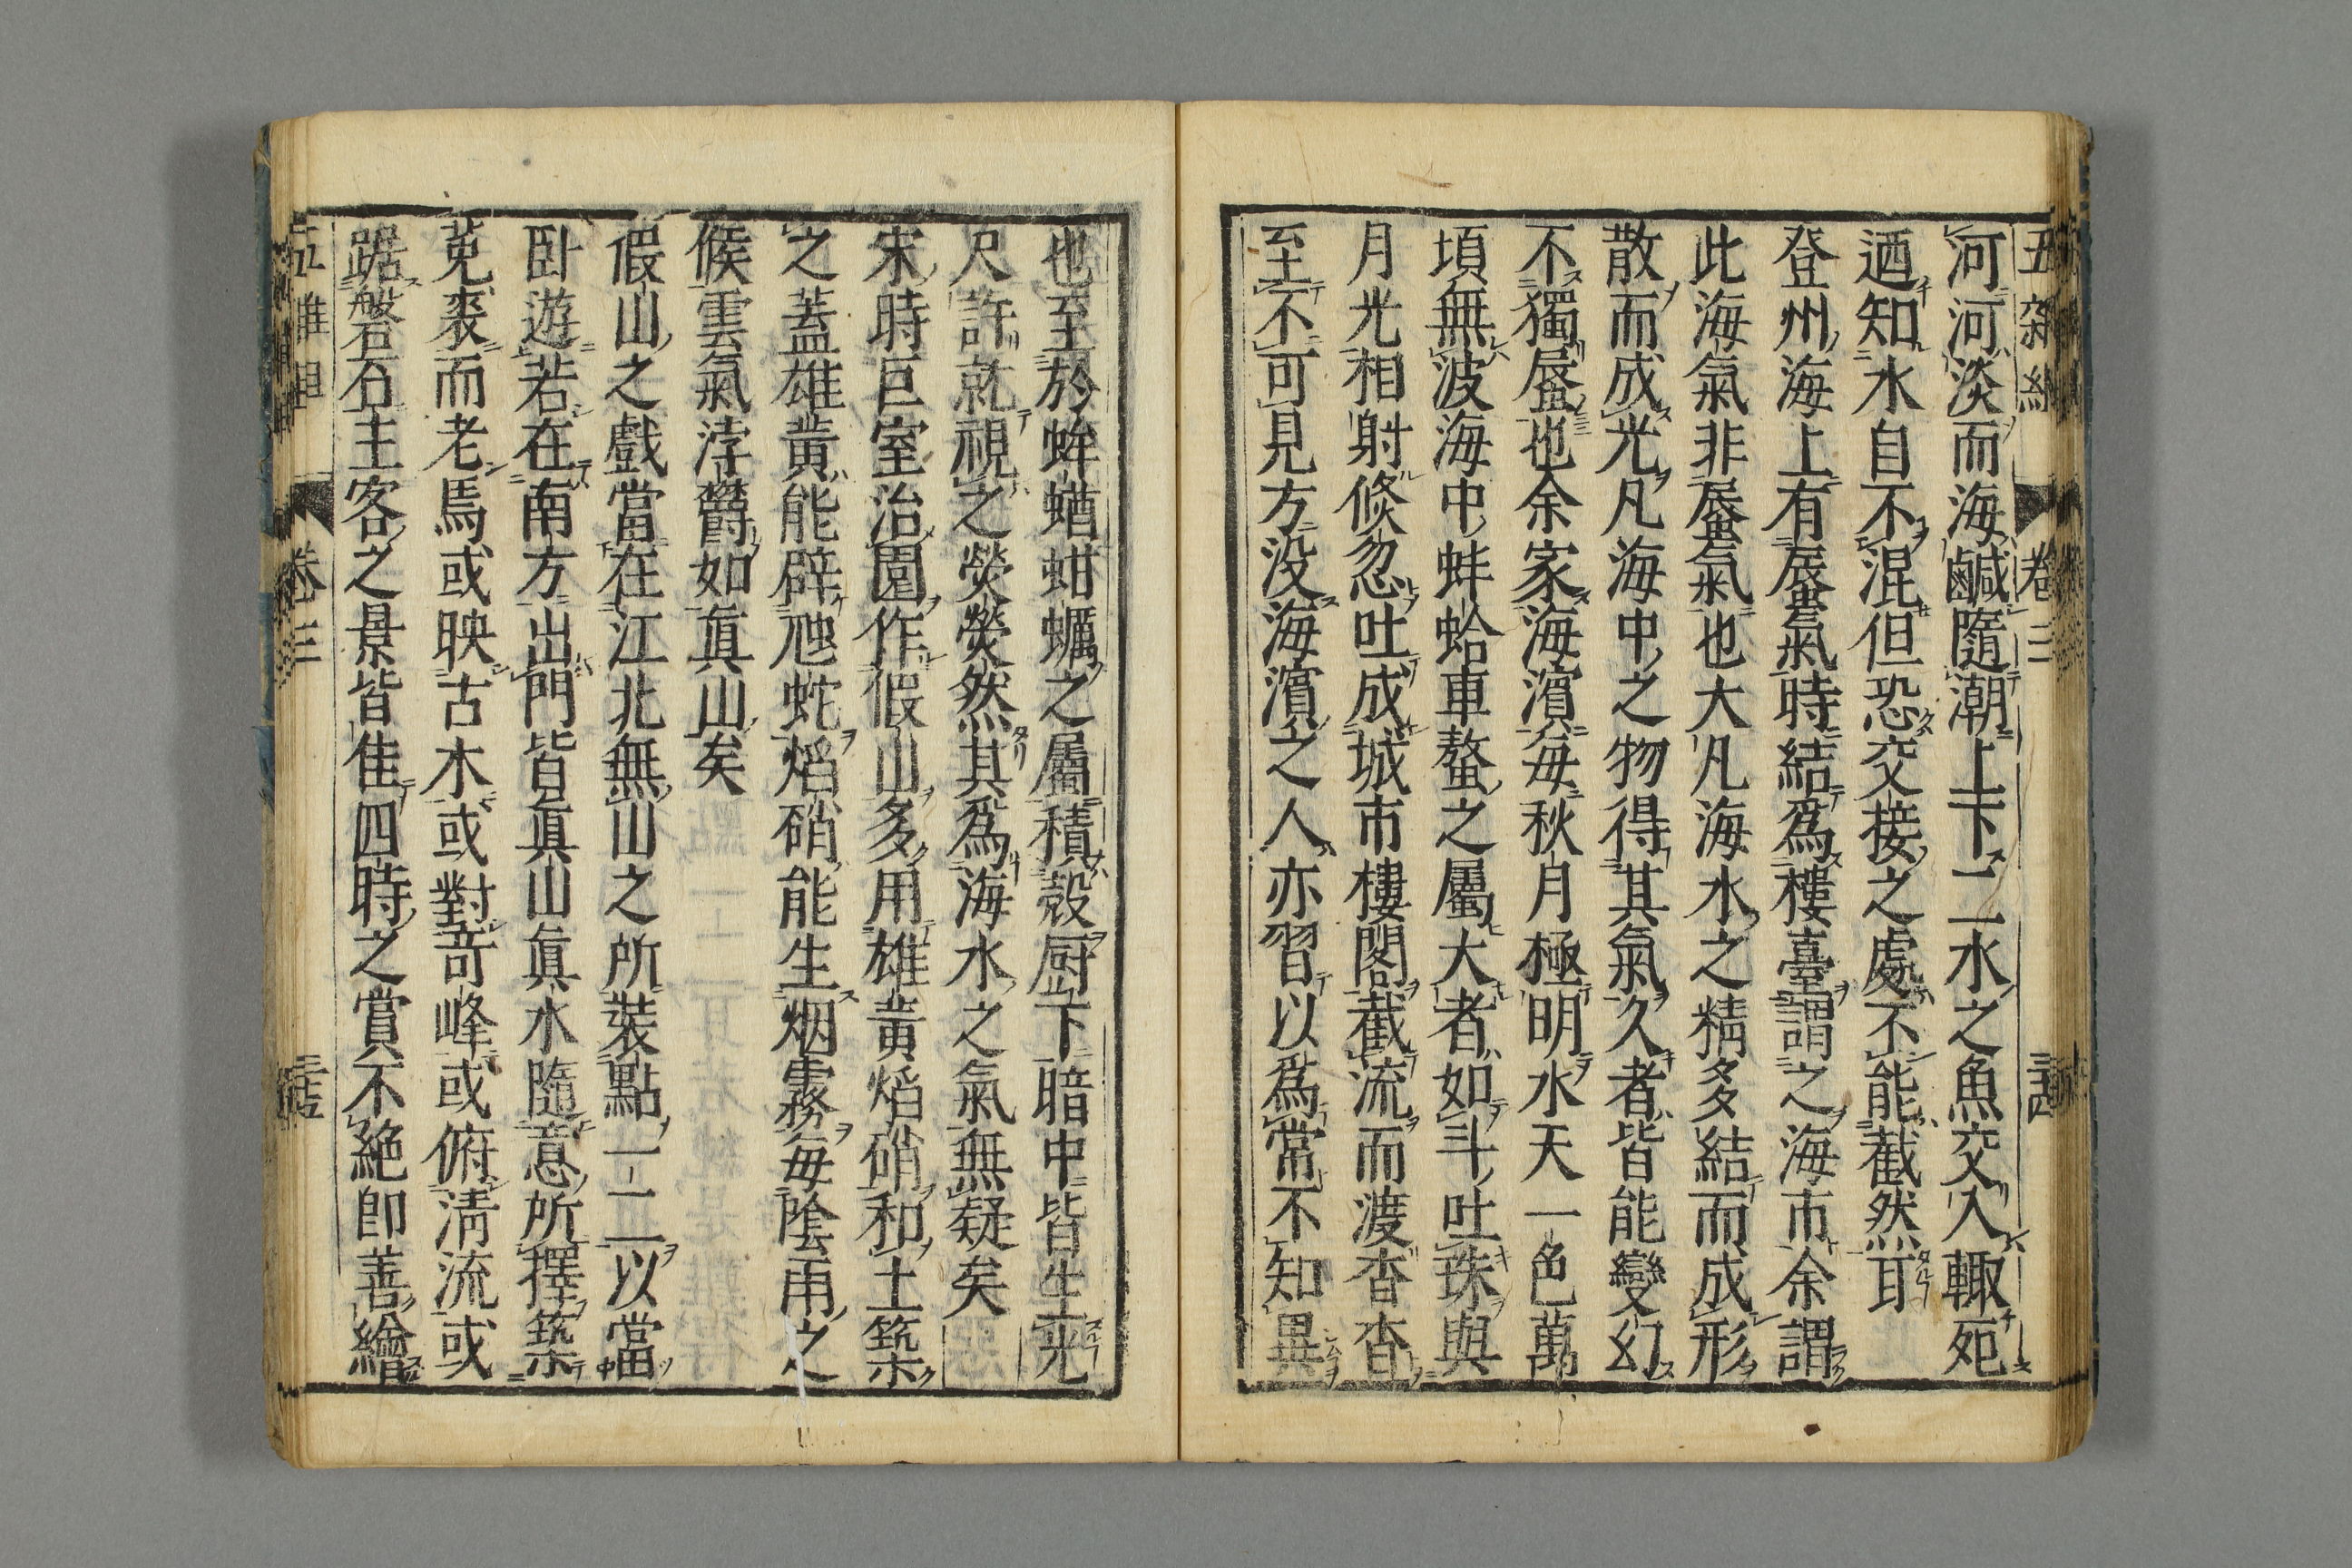 五雜組 卷三 三十四
河河淡而海鹹隨潮上下二水之魚交入輙死
迺知水自不混但恐交接之處不能截然耳
登州海上有蜃氣時結爲樓臺謂之海市余謂
此海氣非蜃氣也大凡海水之精多結而成形
散而成光凡海中之物得其氣久者皆能變幻
不獨蜃也余家海濵毎秋月極明水天一色萬
頃無波海中蚌蛤車螯之屬大者如斗吐珠與
月光相射倐忽吐成城市樓閣截流而渡杳杳
至不可見方没海濵之人亦習以爲常不知異
也至於蛑蝤蚶蠣之屬積殼厨下暗中皆生光
尺許就視之熒熒然其爲海水之氣無疑矣
宋時巨室治園作假山多用雄黄熖硝和土築
之蓋雄黄能辟虺蛇熖硝能生烟霧毎陰雨之
候雲氣浡欝如眞山矣
假山之戲當在江北無山之所裝點一二以當
卧遊若在南方出門皆眞山眞水隨意所擇築
莵裘而老焉或映古木或對竒峰或俯淸流或
踞磐石主客之景皆佳四時之賞不絶卽善繪
卷三